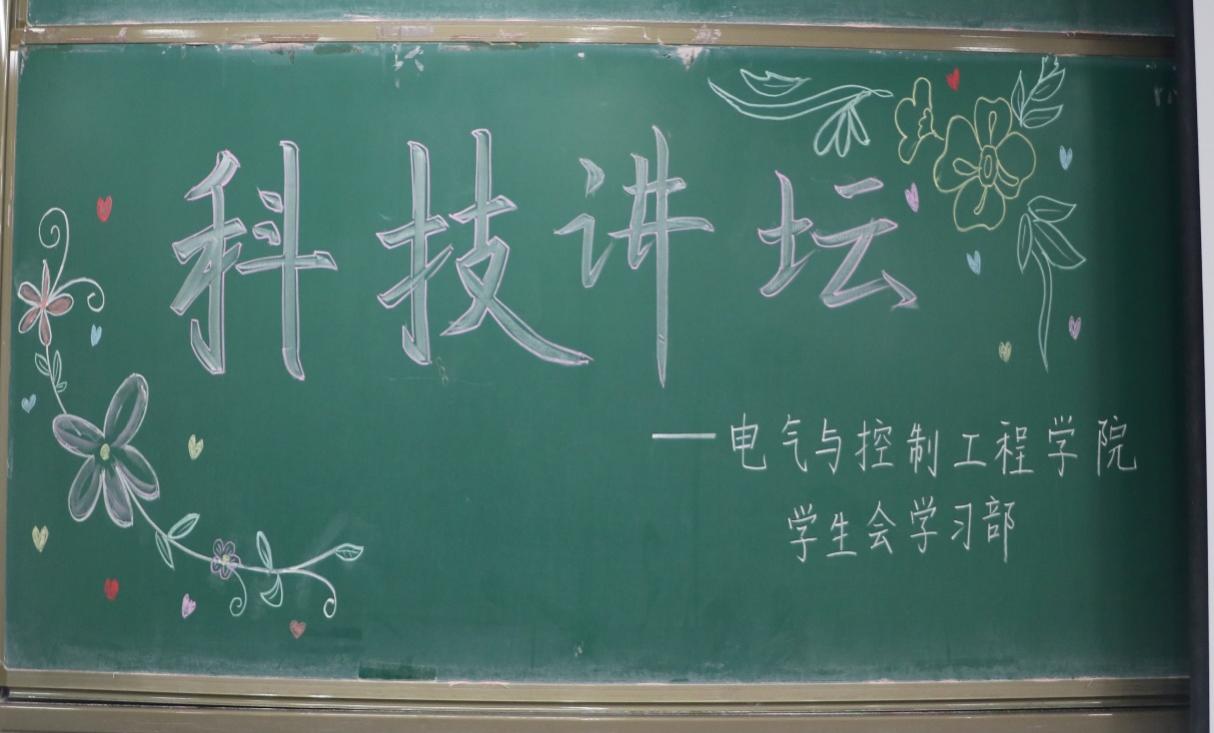 科技讲坛
—电气与控制工程学院
学生会学习部